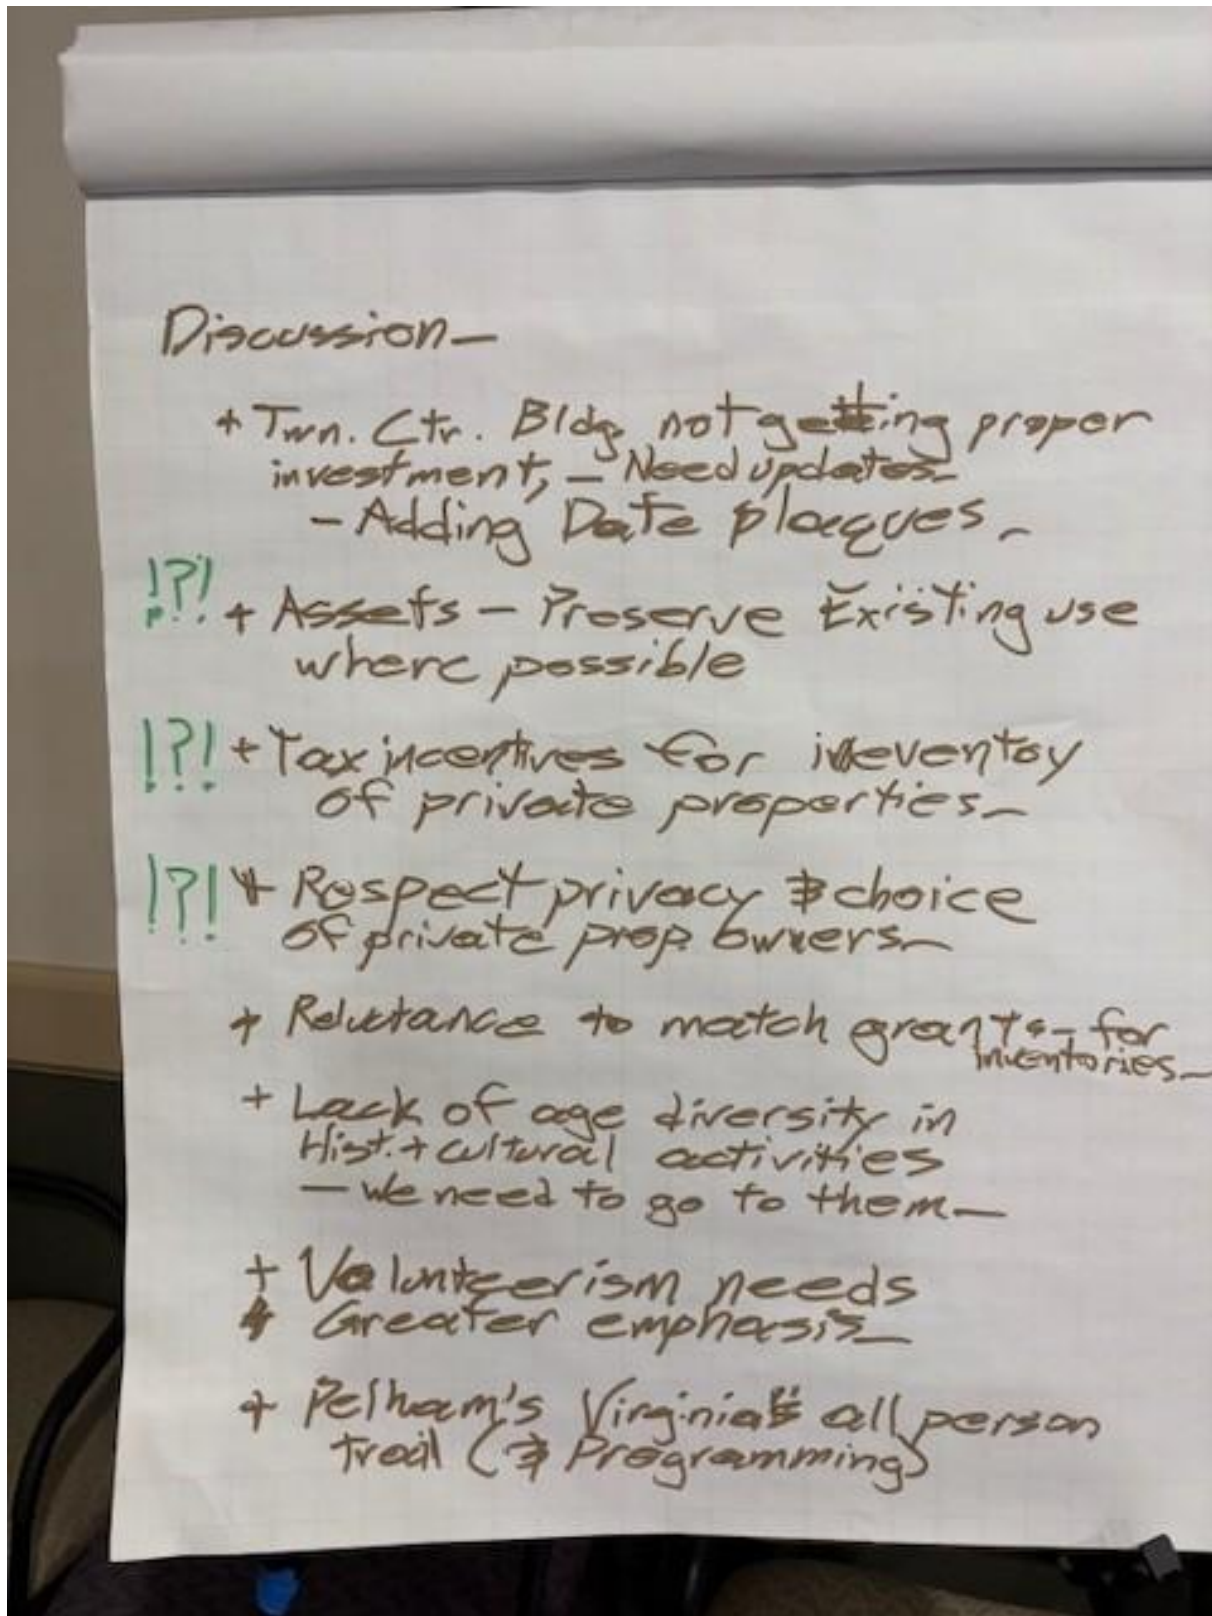 Discussion—
+ Twn. Ctr. Bldg. not getting proper
investment, — Need updates—
- Adding Date plaques—
!?! + Assets — Preserve Existing use
where possible
!?! + Tax incentives for inventoy
of private properties—
!?! + Respect privacy & choice
of private prop. owners—
+ Reluctance to match grants — for
inventories—
+ Lack of age diversity in
Hist. + cultural activities
— we need to go to them—
+ Volunteerism needs
Greater emphasis—
+ Pelham's Virginia's all person
trail (& Programming)